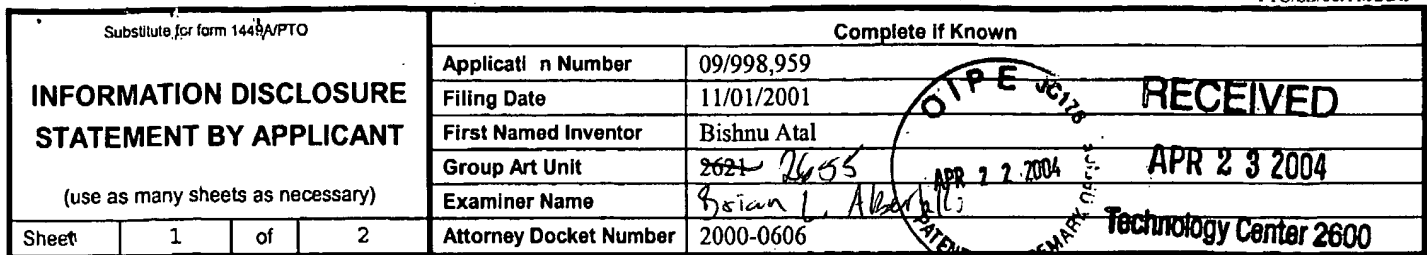 Substitute for form 1449A/PTO
INFORMATION DISCLOSURE
STATEMENT BY APPLICANT
(use as many sheets as necessary)
Sheet 1 of 2
Complete if Known
Applicati n Number 09/998,959
Filing Date 11/01/2001
First Named Inventor Bishnu Atal
Group Art Unit 2621 2655
Examiner Name Brian L.
Attorney Docket Number 2000-0606
OIPE JC178
APR 22 2004
RECEIVED
APR 23 2004
Technology Center 2600